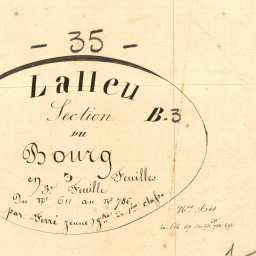 - 35 -
Lalleu
Section B.3
DU
Bourg
en 3 Feuilles
3e Feuille
Du No 611 au No 786
par Ferré jeune, géé de 1re classe